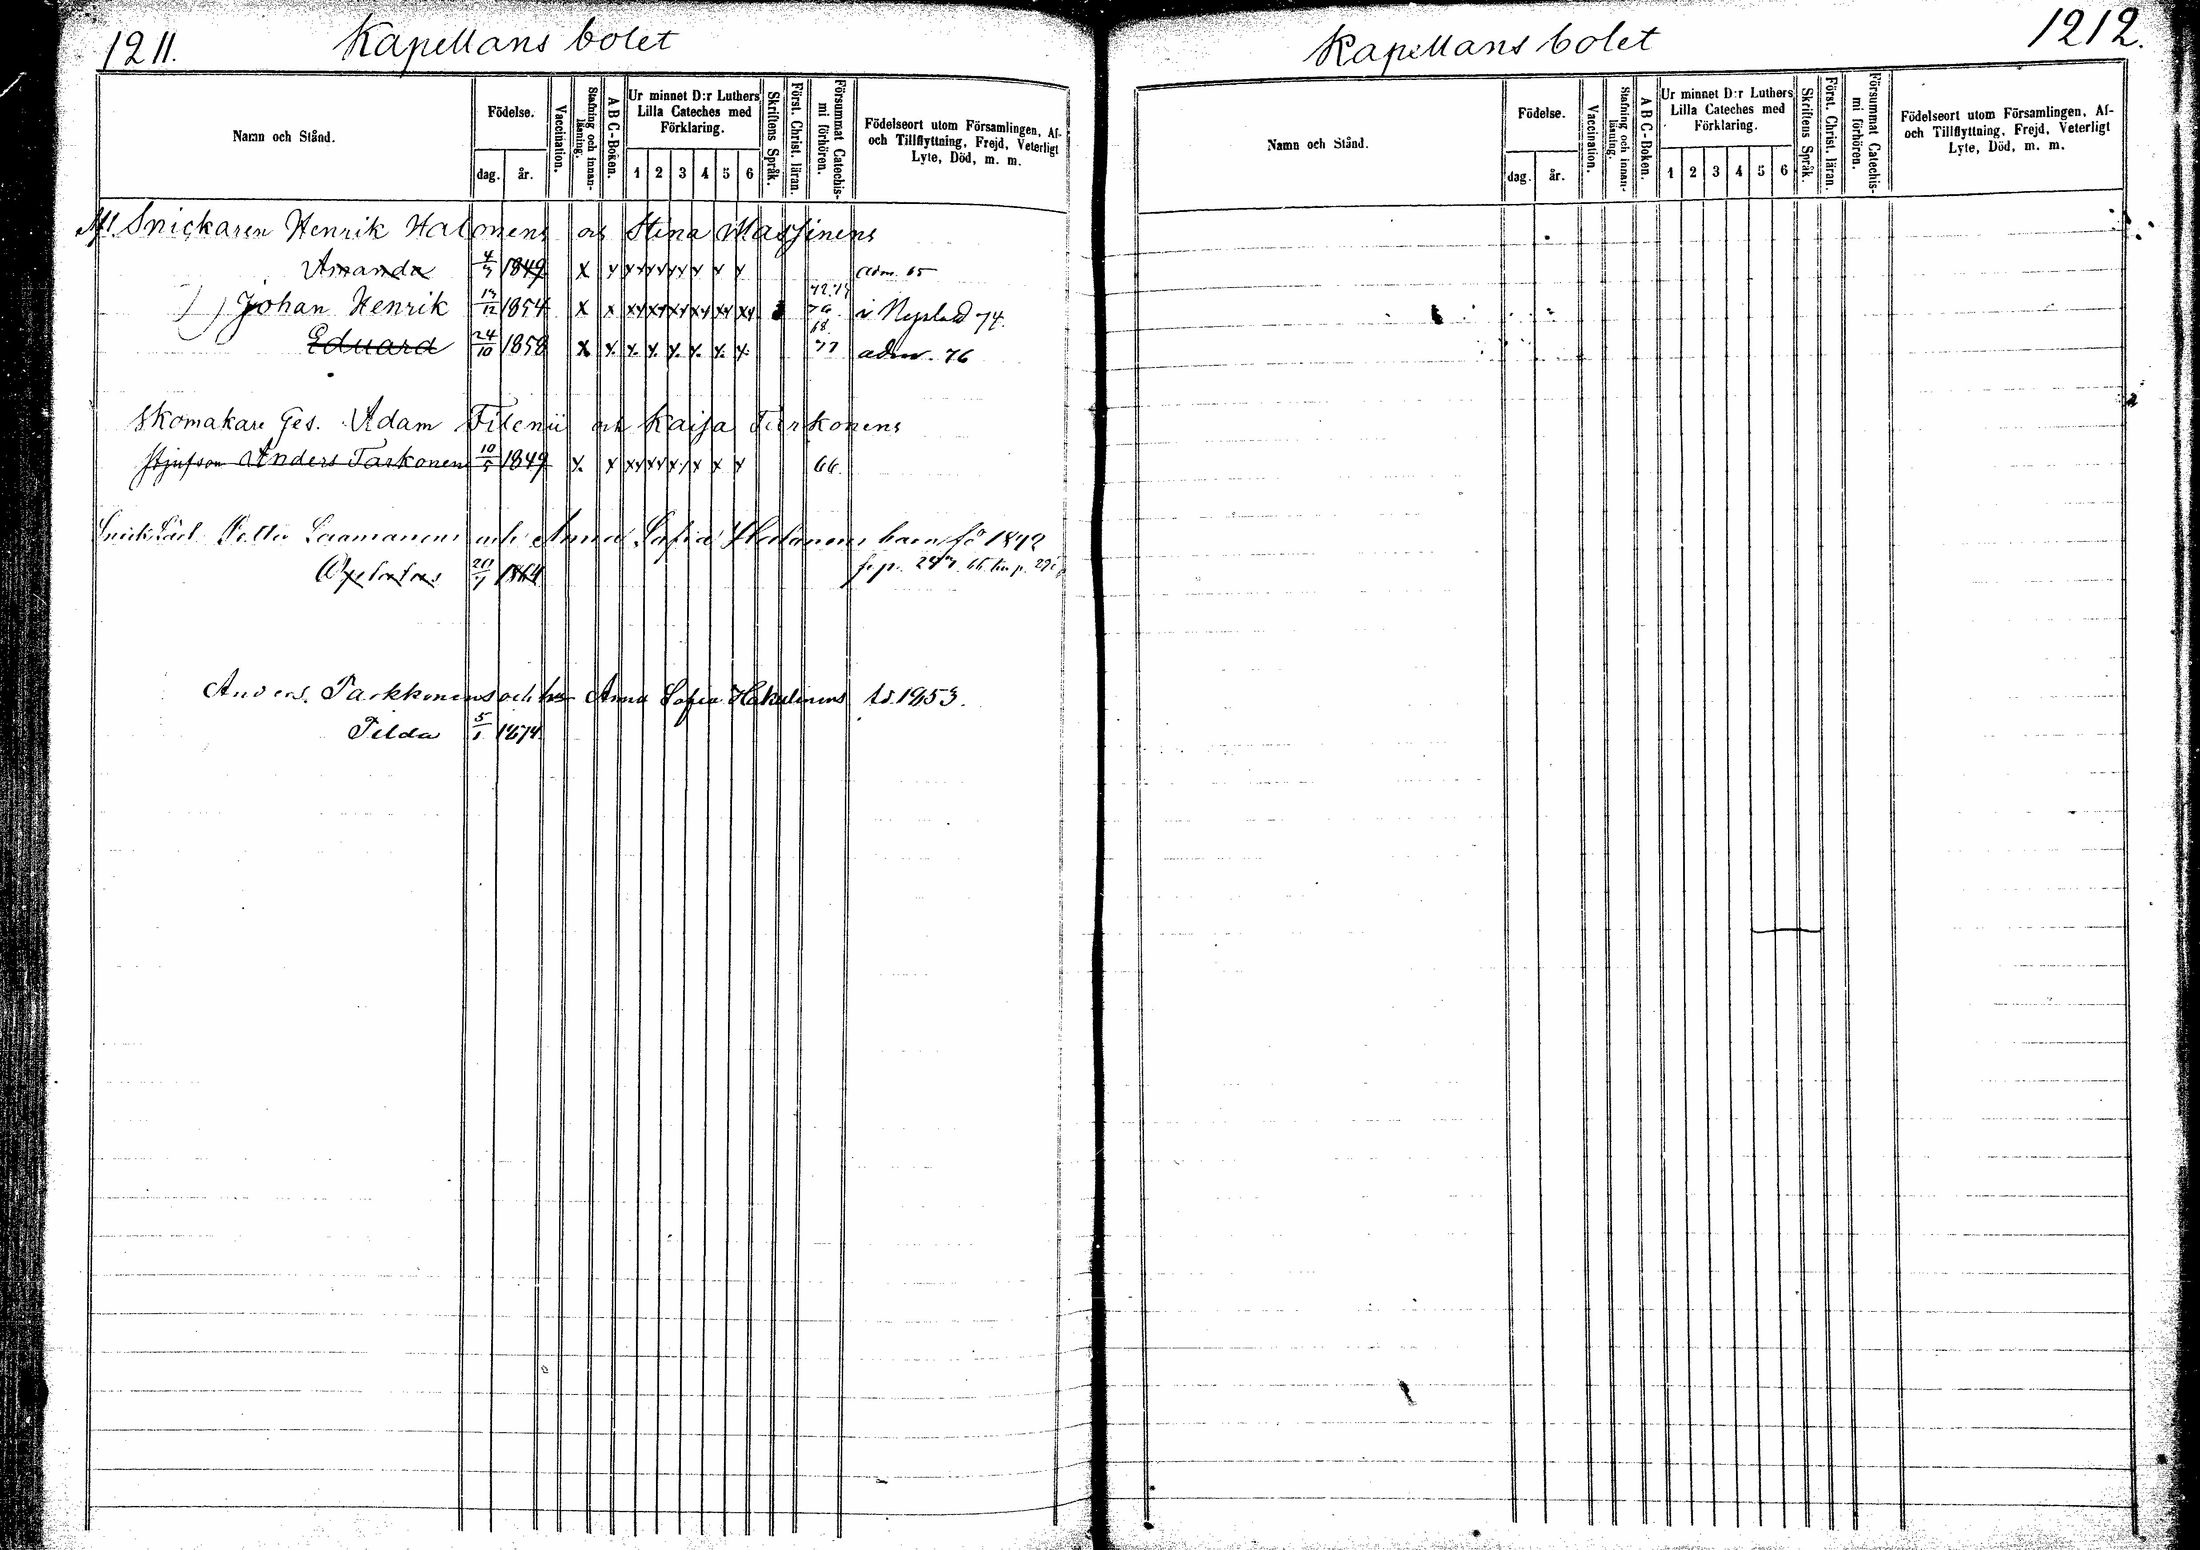 1211. Kapellans bolet
Namn och Stånd. Födelse. dag. år. Vaccination. Stafning och innanläsning. A B C-Boken. Ur minnet D:r Luthers Lilla Cateches med Förklaring. 1 2 3 4 5 6 Skriftens Språk. Först. Christ. läran. Försummat Catechismi förhören. Födelseort utom Församlingen, Af- och Tillflyttning, Frejd, Veterligt Lyte, Död, m. m.
Snickaren Henrik Halonens och Stina Massinens
Amanda 4/7 1849 x x xx xx xx x x x adm. 65
Johan Henrik 13/12 1854 x x xx xx xx xx xx xx i Nyslad 74.
Eduard 24/10 1858 x x x x x x x x 77 adm. 76
Skomakare Ges. Adam Filenii och Kaisa Turkonens
Stjufson Anders Tarkonen 10/5 1849 x x xx xx x x x x 66.
Petter Laamanens och Anna Sofia barn 1892
1864
Anders Parkkonens och Anna Sofia Hakulinens 1953.
Tilda 5/1 1874
1212.
Kapellans bolet
Namn och Stånd. Födelse. dag. år. Vaccination. Stafning och innanläsning. A B C-Boken. Ur minnet D:r Luthers Lilla Cateches med Förklaring. 1 2 3 4 5 6 Skriftens Språk. Först. Christ. läran. Försummat Catechismi förhören. Födelseort utom Församlingen, Af- och Tillflyttning, Frejd, Veterligt Lyte, Död, m. m.